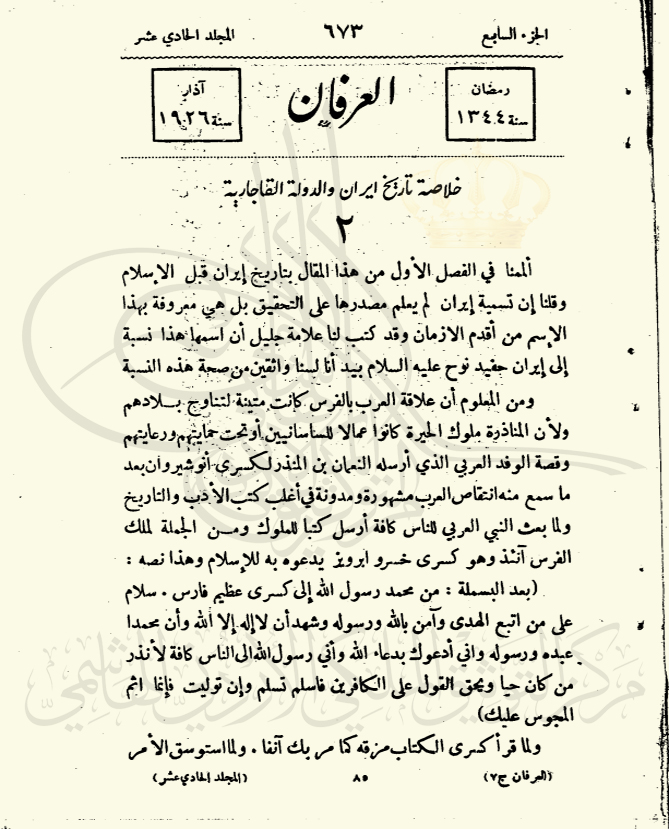 الجزء السابع ٦٧٣ المجلد الحادي عشر
رمضان
سنة ١٣٤٤
العرفان
آذار
سنة ١٩٢٦
خلاصة تاريخ ايران والدولة القاجارية
٢
ألممنا في الفصل الأول من هذا المقال بتاريخ إيران قبل الإسلام
وقلنا إن تسمية إيران لم يعلم مصدرها على التحقيق بل هي معروفة بهذا
الإسم من أقدم الازمان وقد كتب لنا علامة جليل أن اسمها هذا نسبة
إلى إيران حفيد نوح عليه السلام بيد أنا لسنا واثقين من صحة هذه النسبة
ومن المعلوم أن علاقة العرب بالفرس كانت متينة لتتاوج بلادهم
ولأن المناذرة ملوك الحيرة كانوا عمالا للساسانيين أو تحت حمايتهم ورعايتهم
وقصة الوفد العربي الذي أرسله النعمان بن المنذر لكسرى أنوشيروان بعد
ما سمع منه انتقاص العرب مشهورة ومدونة في أغلب كتب الأدب والتاريخ
ولما بعث النبي العربي للناس كافة أرسل كتبا للملوك ومن الجملة لملك
الفرس آنئذ وهو كسرى خسرو ابرويز يدعوه به للإسلام وهذا نصه :
(بعد البسملة : من محمد رسول الله إلى كسرى عظيم فارس . سلام
على من اتبع الهدى وآمن بالله ورسوله وشهد أن لا إله إلا الله وأن محمدا
عبده ورسوله واني أدعوك بدعاء الله وأني رسول الله الى الناس كافة لأنذر
من كان حيا ويحق القول على الكافرين فاسلم تسلم وإن توليت فإنما اثم
المجوس عليك)
ولما قرأ كسرى الكتاب مزقه كما مر بك آنفا . ولما استوسق الأمر
(العرفان ج٧) ٨٥ (المجلد الحادي عشر)